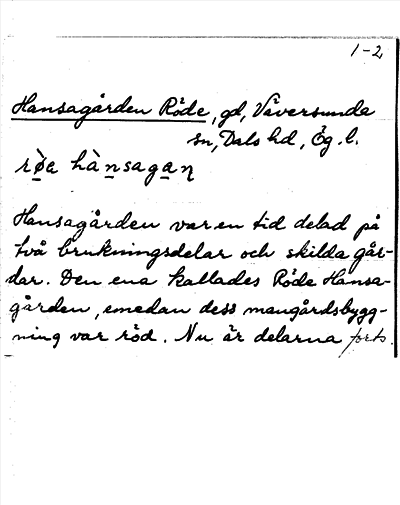 1-2
Hansagården Röde, gd, Väversunda
sn, Dals hd, Ög. l.
rø̀a hànsagaṇ
Hansagården var en tid delad på
två brukningsdelar och skilda går-
dar. Den ena kallades Röde Hansa-
gården, emedan dess mangårdsbygg-
ning var röd. Nu är delarna forts.